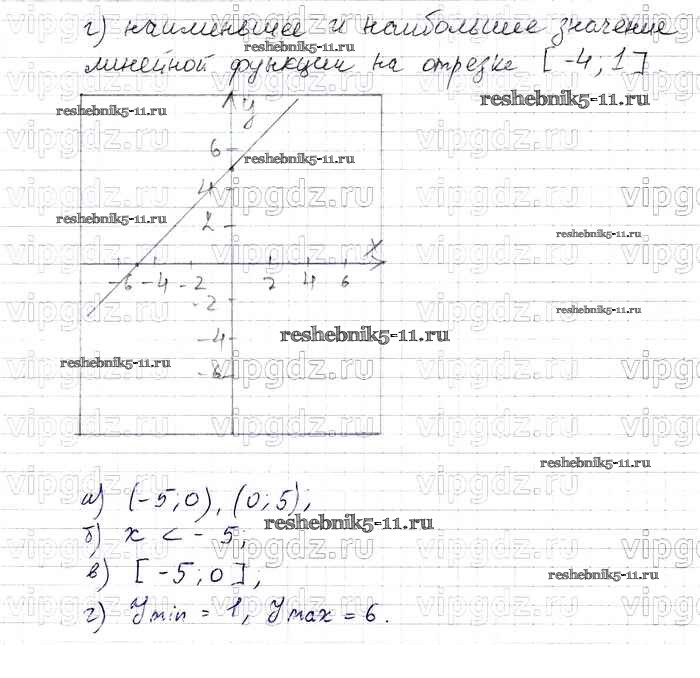 г) наименьшее и наибольшее значение
линейной функции на отрезке [-4, 1].
y
6
4
2
x
-6 -4 -2 2 4 6
-2
-4
-6
а) (-5; 0), (0; 5);
б) x < -5;
в) [-5; 0];
г) y min = 1, y max = 6.
reshebnik5-11.ru
reshebnik5-11.ru
reshebnik5-11.ru
reshebnik5-11.ru
reshebnik5-11.ru
reshebnik5-11.ru
reshebnik5-11.ru
reshebnik5-11.ru
reshebnik5-11.ru
reshebnik5-11.ru
reshebnik5-11.ru
reshebnik5-11.ru
vipgdz.ru